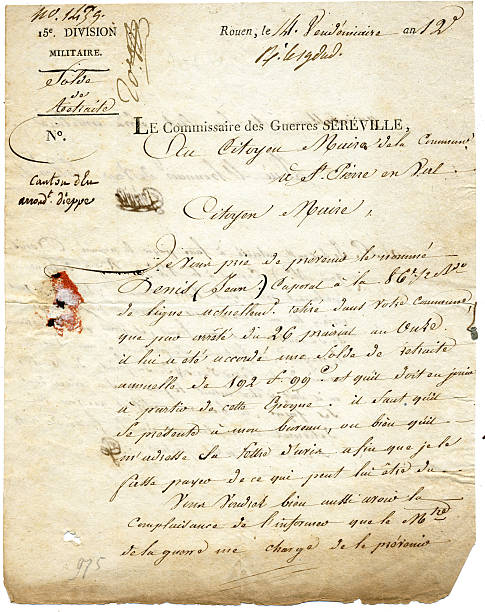 No. 1459.
15e. DIVISION
MILITAIRE.
Solde
de
Retraite
No.
Canton d'Eu
arrondt. Dieppe
Rouen, le 14 Vendémiaire an 12e
LE Commissaire des Guerres SÉRÉVILLE,
Au Citoyen Maire de la Commune
de St. Pierre en Val
Citoyen Maire,
Je vous prie de prévenir le nommé
Denis (Jean) Caporal à la 86e 1/2 Bde
de ligne actuellemt. retiré dans votre Commune,
que par arrêté du 26 prairial an Onze
il lui a été accordé une Solde de retraite
annuelle de 192 f. 99 c. et qu'il doit en jouir
à partir de cette Epoque. il faut qu'il
se présente à mon bureau, ou bien qu'il
m'adresse sa lettre d'avis afin que je le
fasse payer de ce qui peut lui être du
Vous voudrez bien aussi avoir la
Complaisance de l'informer que le Mtre
de la guerre me charge de le prévenir
975